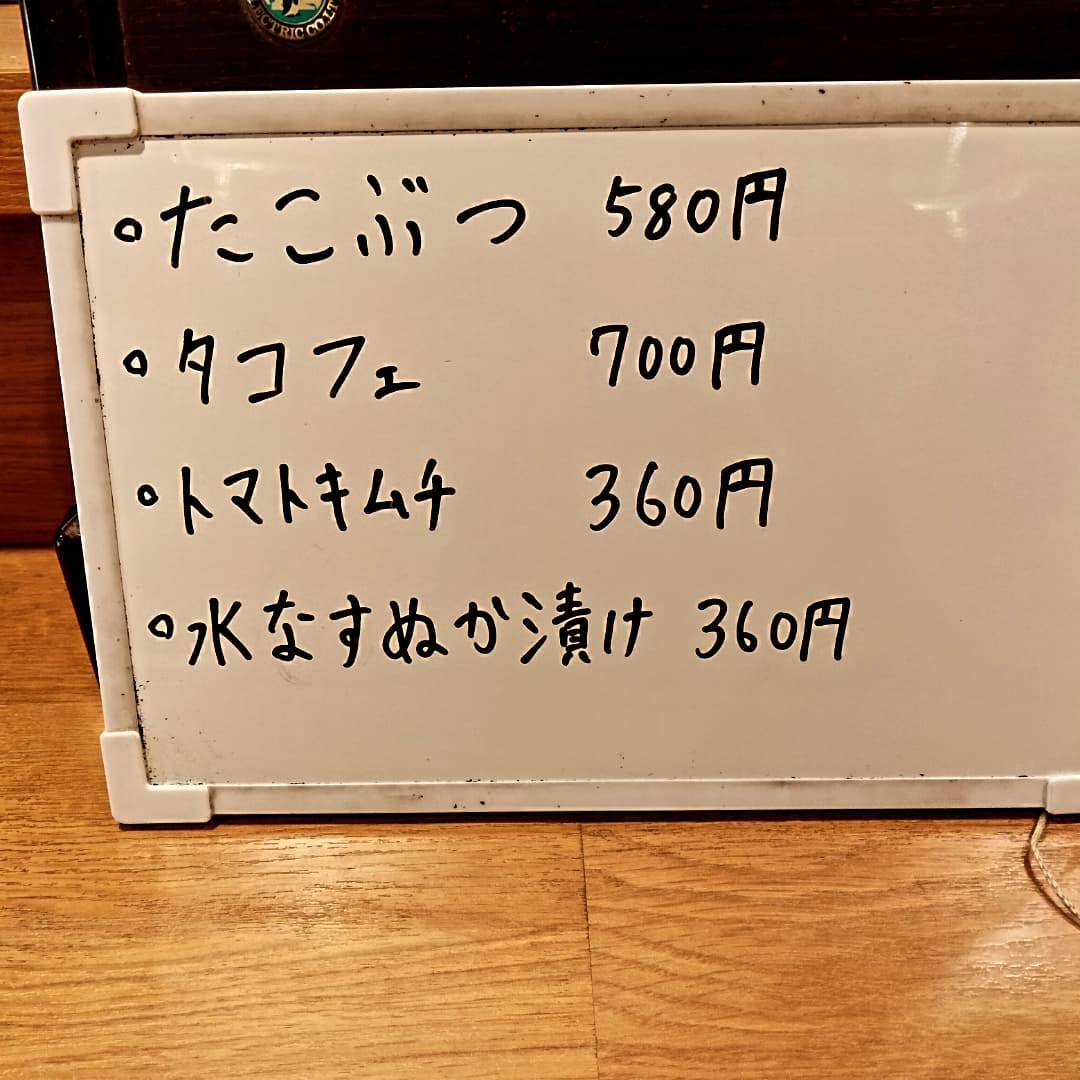 ECTRIC CO.LT
。たこぶつ 580円
。タコフェ 700円
。トマトキムチ 360円
。水なすぬか漬け 360円